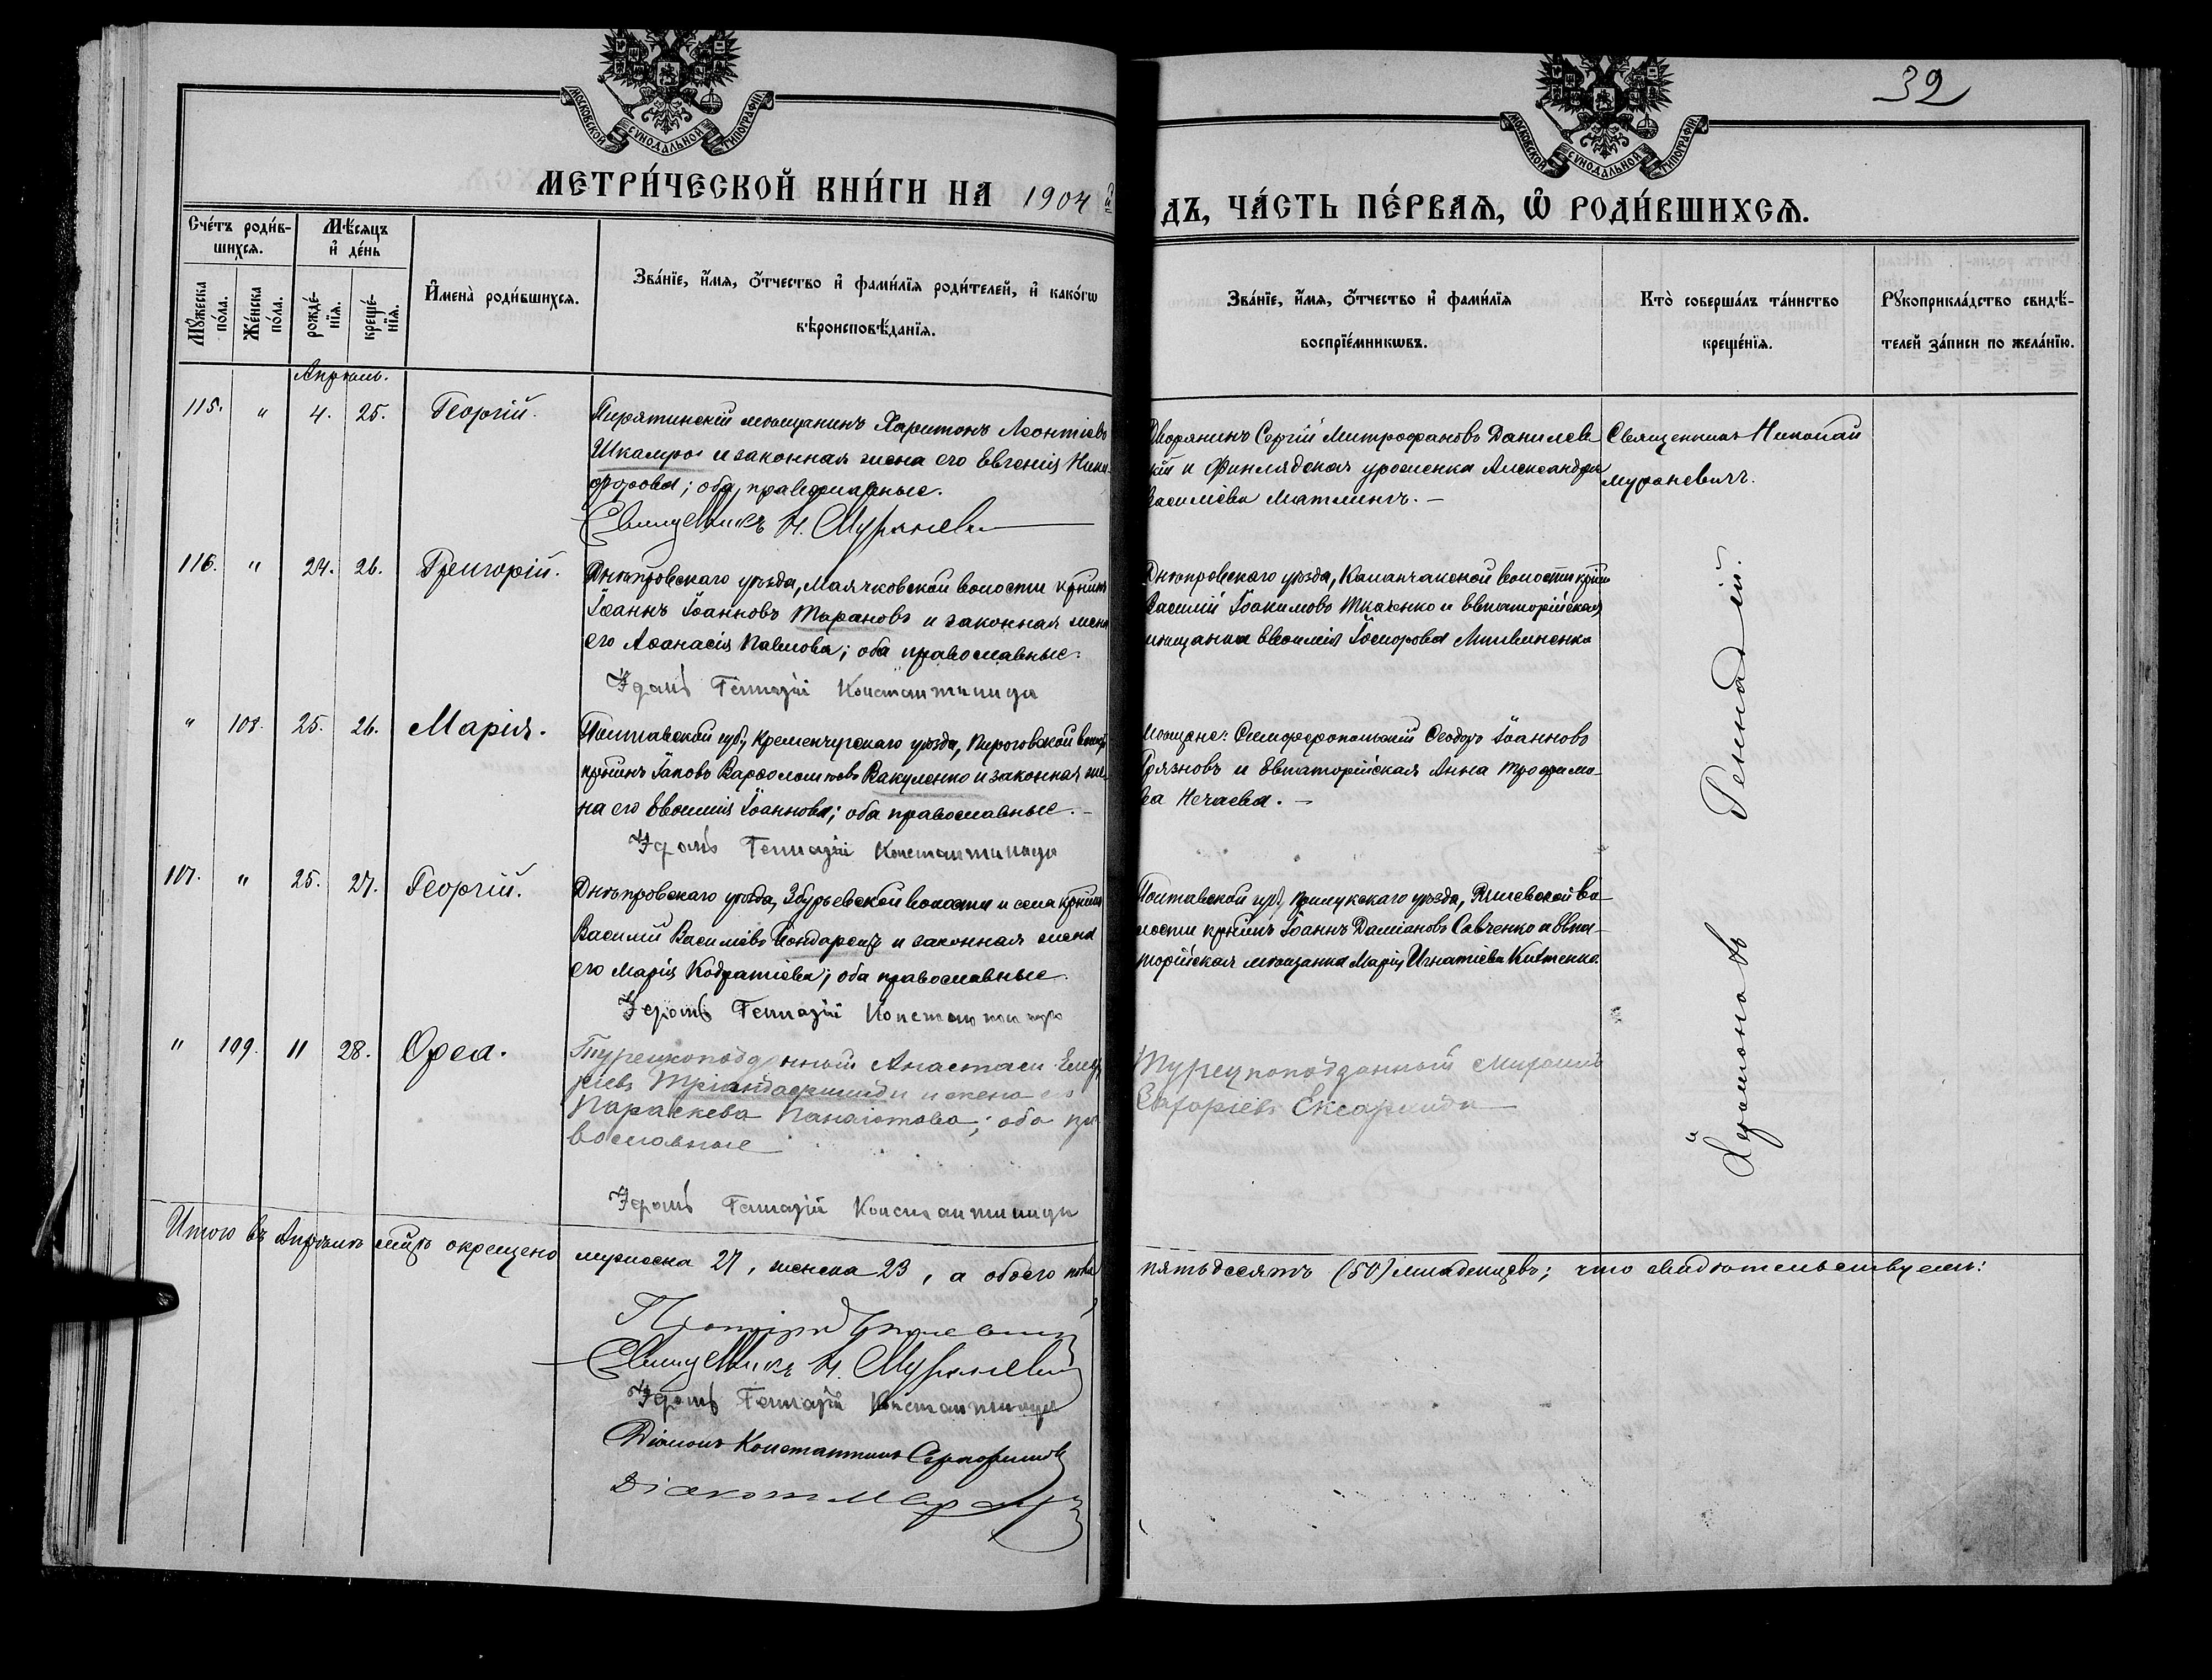 32
МОСКОВСКОЙ СУНОДАЛЬНОЙ ТИПОГРАФІИ
МОСКОВСКОЙ СУНОДАЛЬНОЙ ТИПОГРАФІИ
МЕТРИ́ЧЕСКОЙ КНИ́ГИ НА 1904 й
ДЪ, ЧА́СТЬ ПЕ́РВАѦ, Ѡ РОДИ́ВШИХСѦ.
Сче́тъ роди́в-
шихсѧ.
Мѣ́сѧцъ
и҆ де́нь
Мꙋ́жеска
по́ла.
Же́нска
по́ла.
рожде́-
нїѧ.
креще́-
нїѧ.
И҆мена̀ роди́вшихсѧ.
Зва́нїе, и҆́мѧ, ѻ҆́тчество и҆ фами́лїѧ роди́телей, и҆ како́гѡ
вѣроисповѣ́данїѧ.
Зва́нїе, и҆́мѧ, ѻ҆́тчество и҆ фами́лїѧ
воспрїе́мникѡвъ.
Кто̀ соверша́лъ та́инство
креще́нїѧ.
Рꙋкоприкла́дство свидѣ́-
телей за́писи по жела́нїю.
Апрѣль.
115. " 4. 25. Георгій.
Пирятинскій мѣщанинъ Харитонъ Леонтіевъ
и законная жена его Евгенія Ники-
форова; оба православные.
Священникъ Н. Мураневич
Дворянинъ Сергій Митрофановъ Данилев
кій и Финлядская уроженка Александра
Васильева
Священникъ Николай
Мураневичъ.
116. " 24. 26. Григорій.
Днѣпровскаго уѣзда, Маячковской волости крнинъ
Іоаннъ Іоанновъ Тарановъ и законная жена
его Аѳанасія Павлова; оба православные.
Іером Геннадій Константиниди
Днѣпровскаго уѣзда, Каланчакской волости крнинъ
Василій Іоакимовъ Ткаченко и Евпаторійская
мѣщанка Евѳимія
" 108. 25. 26. Марія.
Полтавской губ, Кременчугскаго уѣзда, Пироговской волости
крнинъ Іаковъ Варѳоломѣевъ Вакуленко и законная же-
на его Евѳимія Іоаннова; оба православные. -
Іером Геннадій Константиниди
Мѣщане: Симферопольскій Ѳеодоръ Іоанновъ
Грязновъ и Евпаторійская Анна Трофимо-
ва Нечаева. -
117. " 25. 27. Георгій.
Днѣпровскаго уѣзда, Збурьевской волости и села крнинъ
Василій Васильевъ Бондарецъ и законная жена
его Марія Кодратіева; оба православные
Іером Геннадій Константиниди
Полтавской губ, Прилукскаго уѣзда, во-
лости крнинъ Іоаннъ Даміановъ Савченко и Евпа-
торійская мѣщанка Марія Игнатіева
" 109. 11 28. Ореа.
Турецкоподданный Анастаси
Тріандафилиди и жена его
Параскева Панаіотова; оба пра
вославные
Іером Геннадій Константиниди
Турецкоподданный
Іеромонахъ Геннадій.
Итого въ Апрѣлѣ мцѣ окрещено мужеска 27, женска 23, а обоего пола
пятьдесятъ (50) младенцевъ; что свидѣтельствуемъ:
Протоіерей
Священникъ Н. Мураневич
Іером Геннадій Константиниди
Діаконъ Константинъ
Діаконъ